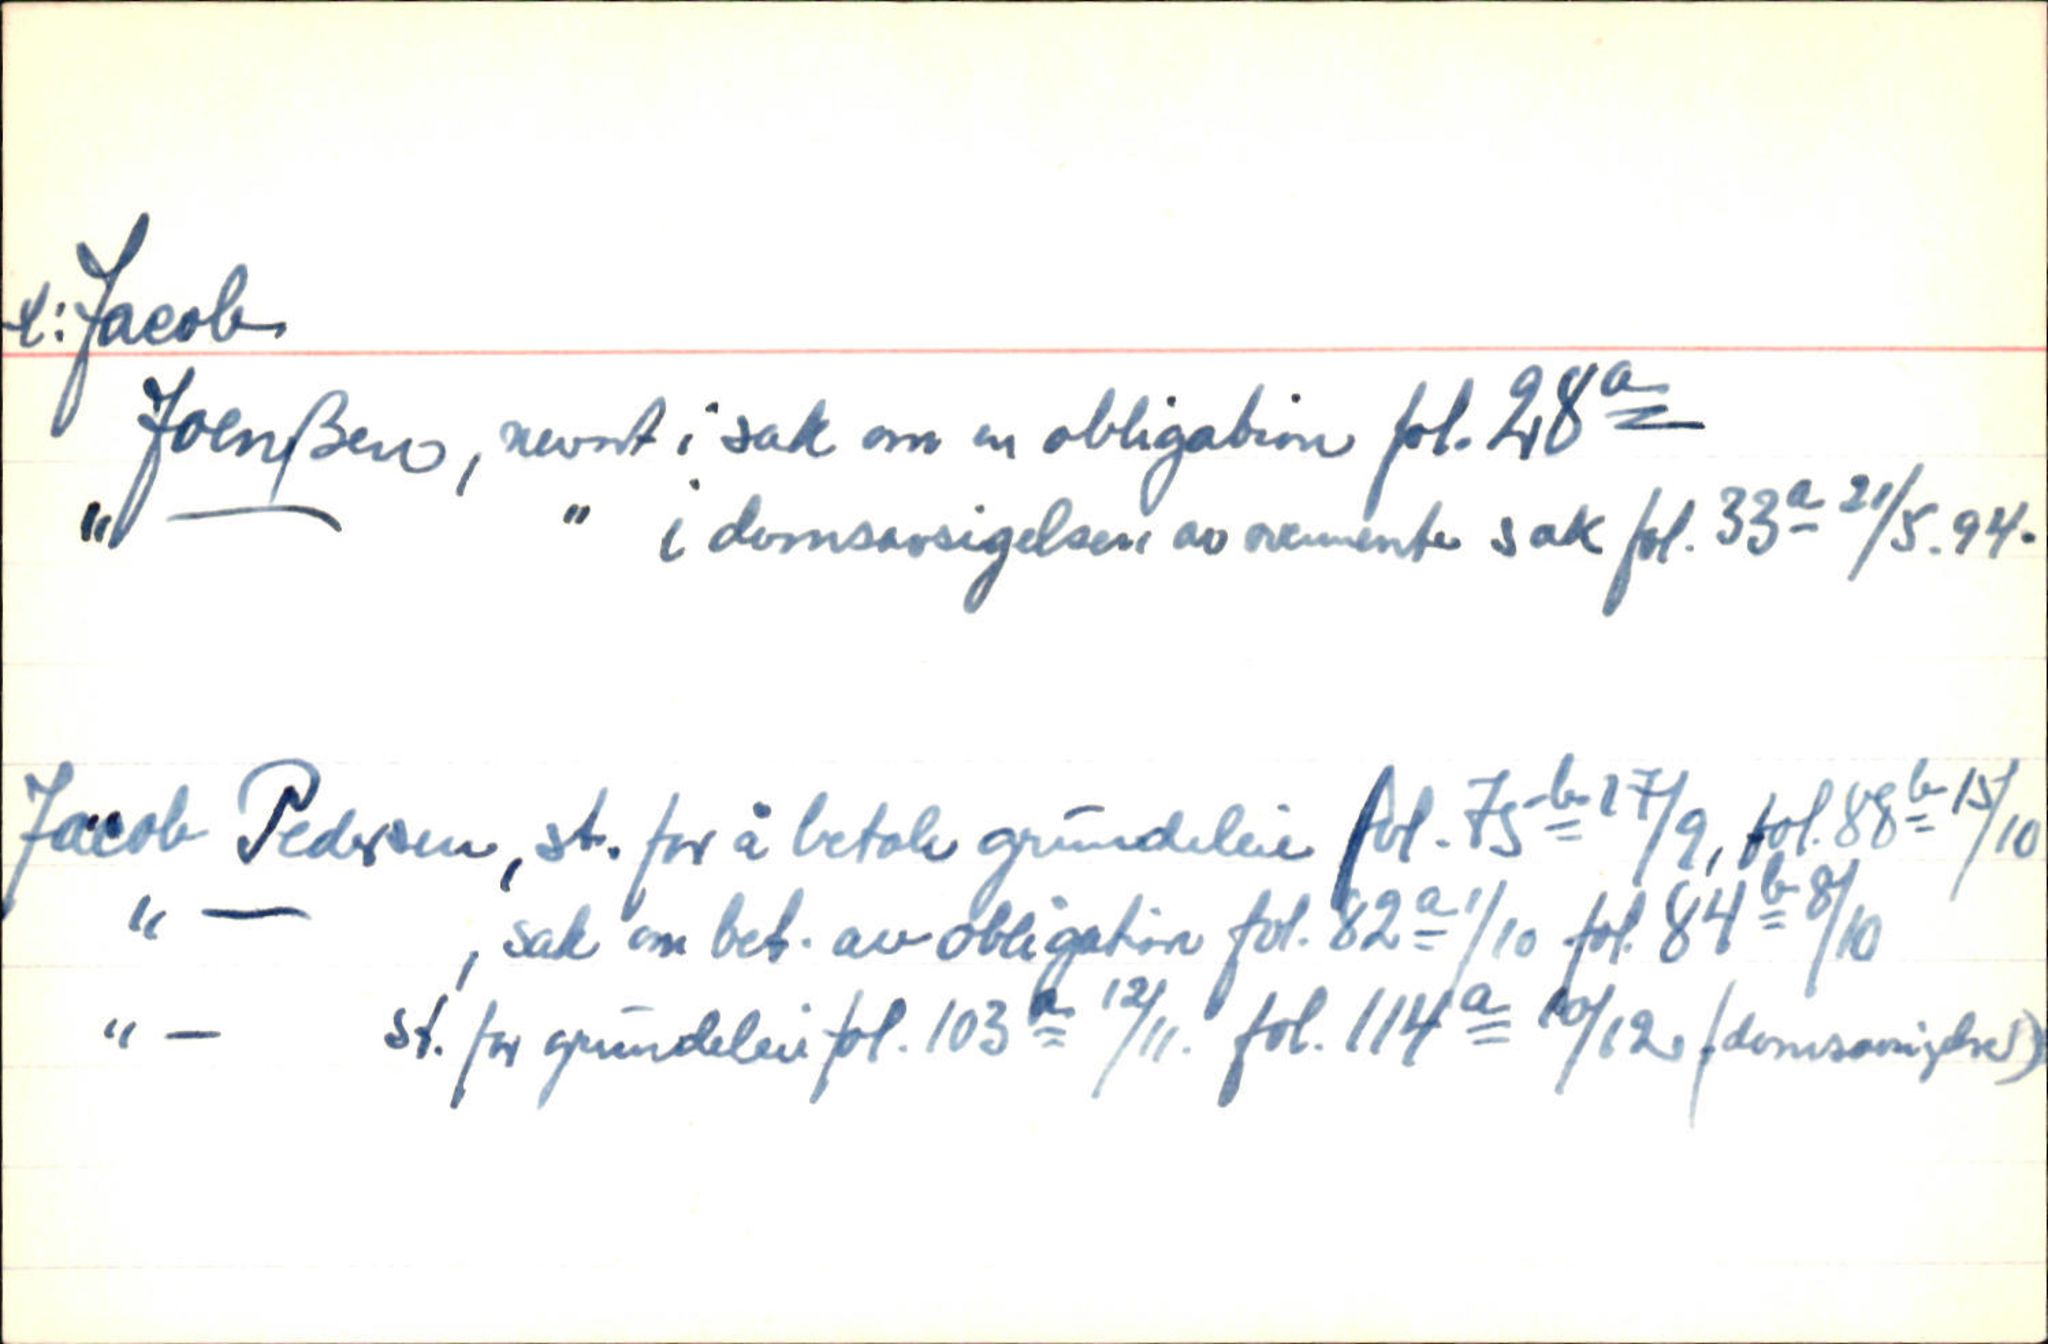 t: Jacob
Joenßen, nevnt i sak om en obligation fol. 28a
" — " i domsavsigelsen av ovennevnte sak fol. 33a 21/5.94.
Jacob Pedersen, st. for å betale grundeleie fol. 75b 17/9, fol. 88b 15/10
" — , sak om bet. av obligation fol. 82a 1/10 fol. 84b 8/10
" — st. for grundeleie fol. 103a 12/11. fol. 114a 10/12. (domsavsigelse)